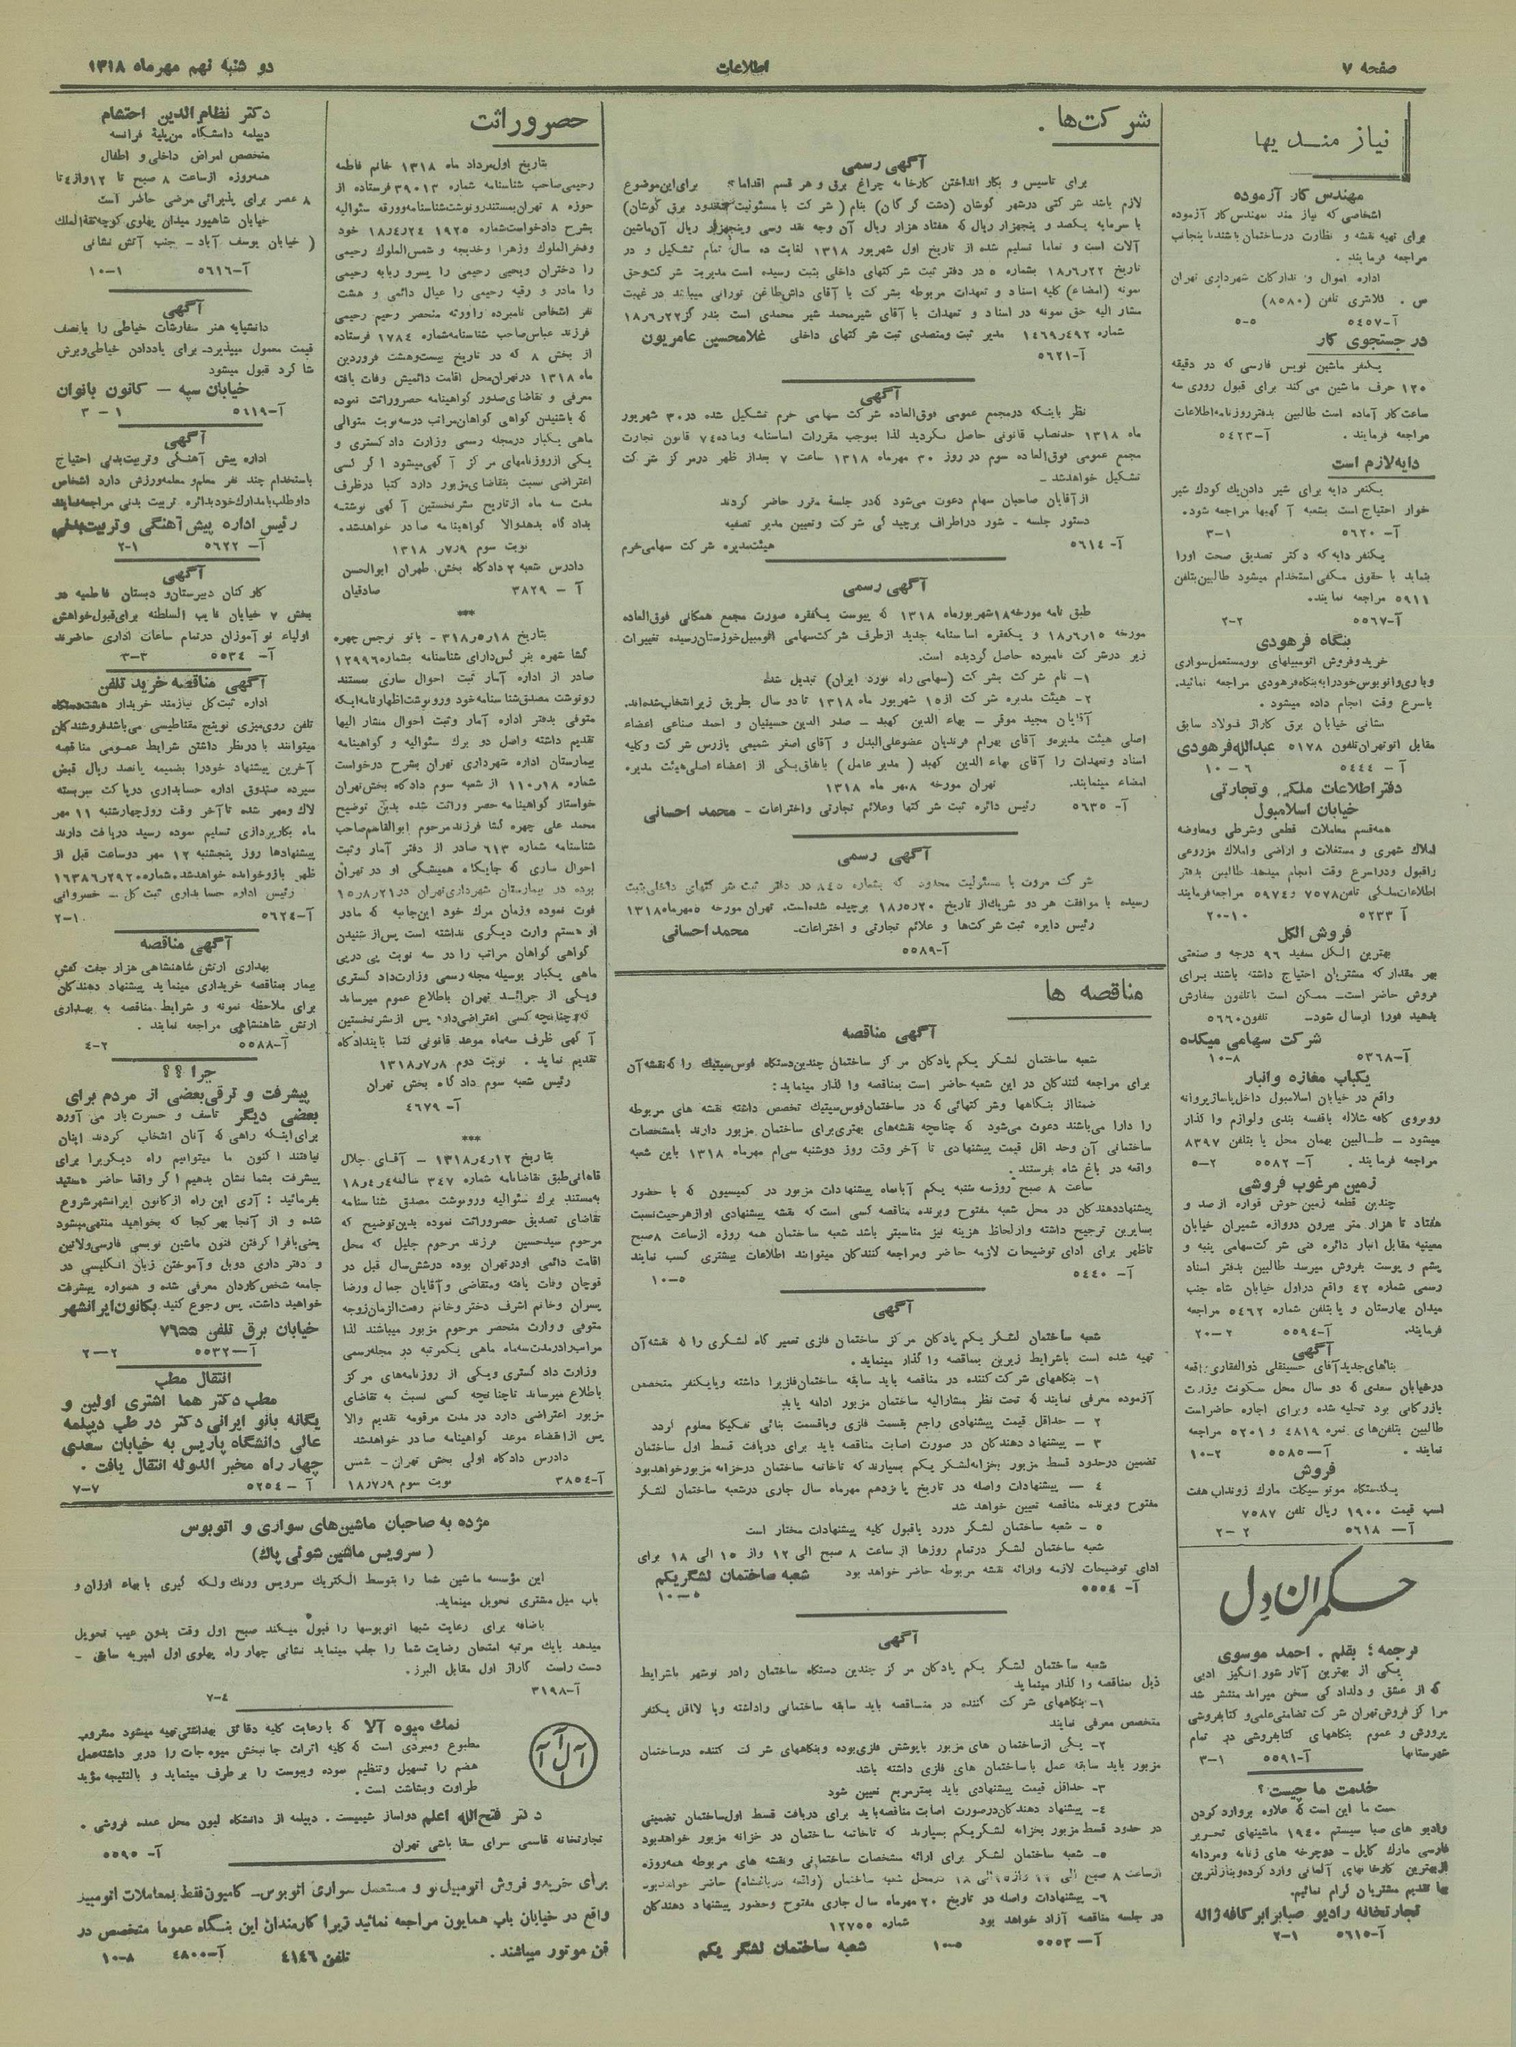 صفحه ۷
اطلاعات
دو شنبه نهم مهرماه ۱۳۱۸
نیاز مندیها
مهندس کار آزموده
اشخاصی که نیاز مند بمهندس کار آزموده
برای تهیه نقشه و نظارت درساختمان باشند باینجانب
مراجعه فرمایند.
اداره اموال و تدارکات شهرداری تهران
س. کلانتری تلفن (۸۵۸۰)
آ-۵۴۵۷ ۵-۵
در جستجوی کار
یکنفر ماشین نویس فارسی که در دقیقه
۱۲۵ حرف ماشین می‌کند برای قبول روزی سه
ساعت کار آماده است طالبین بدفتر روزنامه اطلاعات
مراجعه فرمایند. آ-۵۴۲۳
دایه لازم است
یکنفر دایه برای شیر دادن یک کودک شیر
خوار احتیاج است بشعبه آگهیها مراجعه شود.
آ- ۵۶۲۰ ۱-۳
یکنفر دایه که دکتر تصدیق صحت اورا
بنماید با حقوق مکفی استخدام میشود طالبین بتلفن
۵۹۱۱ مراجعه نمایند.
آ-۵۵۶۷ ۲-۲
بنگاه فرهودی
خرید و فروش اتومبیلهای نو و مستعمل سواری
و باری و اتوبوس خود را به بنگاه فرهودی مراجعه نمائید.
باسرع وقت انجام داده میشود.
نشانی خیابان برق گاراژ فولاد سابق
مقابل اتوتهران تلفون ۵۱۷۸ عبدالله فرهودی
آ- ۵۴۴۴ ۶-۱۰
دفتر اطلاعات ملکی و تجارتی
خیابان اسلامبول
همه قسم معاملات قطعی و شرطی و معاوضه
املاک شهری و مستغلات و اراضی و املاک مزروعی
را قبول و در اسرع وقت انجام میدهد طالبین بدفتر
اطلاعات ملکی تلفن ۷۵۷۸ و ۵۹۷۴ مراجعه فرمایند
آ ۵۲۳۳ ۱۰-۲۰
فروش الکل
بهترین الکل سفید ۹۶ درجه و صنعتی
بهر مقدار که مشتریان احتیاج داشته باشند برای
فروش حاضر است- ممکن است با تلفون سفارش
بدهید فورا ارسال شود- تلفون ۵۶۶۰
شرکت سهامی میکده
آ-۵۳۶۸ ۸-۱۰
یکباب مغازه و انبار
واقع در خیابان اسلامبول داخل پاساژ پروانه
روبروی کافه شلاله باقفسه بندی و لوازم واگذار
میشود- طالبین بهمان محل یا بتلفن ۸۳۹۷
مراجعه فرمایند. آ- ۵۵۸۲ ۲-۵
زمین مرغوب فروشی
چندین قطعه زمین خوش قواره از صد و
هفتاد تا هزار متر بیرون دروازه شمیران خیابان
معینیه مقابل انبار دائره فنی شرکت سهامی پنبه و
پشم و پوست بفروش میرسد طالبین بدفتر اسناد
رسمی شماره ۴۲ واقع دراول خیابان شاه جنب
میدان بهارستان و یا بتلفن شماره ۵۴۶۲ مراجعه
فرمایند. آ-۵۵۹۴ ۲-۲۰
آگهی
بناهای جدید آقای حسینقلی ذوالفقاری واقعه
در خیابان سعدی که دو سال محل سکونت وزارت
بازرگانی بود تخلیه شده و برای اجاره حاضر است
طالبین بتلفن‌های نمره ۴۸۱۹ و ۵۲۰۱ مراجعه
نمایند. آ-۵۵۸۵ ۲-۱۰
فروش
یکدستگاه موتوسیکلت مارک زونداب هفت
اسب قیمت ۱۹۰۰ ریال تلفن ۷۵۸۷
آ- ۵۶۱۸ ۲-۲
حکمران دل
ترجمه؛ بقلم. احمد موسوی
یکی از بهترین آثار شورانگیز ادبی
که از عشق و دلدادگی سخن میراند منتشر شد
مرکز فروش تهران شرکت تضامنی علمی و کتابفروشی
پرورش و عموم بنگاههای کتابفروشی در تمام
شهرستانها آ-۵۵۹۱ ۱-۳
خدمت ما چیست؟
ست ما این است که علاوه بر وارد کردن
رادیو های صبا سیستم ۱۹۴۰ ماشینهای تحریر
فارسی مارک کاپل- دوچرخه های زنانه و مردانه
از بهترین کارخانهای آلمانی وارد کرده و بنازلترین
بها تقدیم مشتریان گرام نمائیم.
تجارتخانه رادیو صبا برابر کافه ژاله
آ-۵۶۱۵ ۱-۲
شرکت‌ها.
آگهی رسمی
برای تاسیس و بکار انداختن کارخانه چراغ برق و هر قسم اقداماتی برای این موضوع
لازم باشد شرکتی در شهر گوشان (دشت گرگان) بنام (شرکت با مسئولیت محدود برق گوشان)
با سرمایه یکصد و پنجهزار ریال که هفتاد هزار ریال آن وجه نقد و سی و پنجهزار ریال آن ماشین
آلات است و تماما تسلیم شده از تاریخ اول شهریور ۱۳۱۸ لغایت ده سال تمام تشکیل و در
تاریخ ۲۲ر۶ر۱۸ بشماره ۵ در دفتر ثبت شرکتهای داخلی بثبت رسیده است مدیریت شرکت و حق
نمونه (امضاء) کلیه اسناد و تعهدات مربوطه بشرکت با آقای داش طاغن نورانی میباشد در غیبت
مشار الیه حق نمونه در اسناد و تعهدات با آقای شیرمحمد شیر محمدی است بندر گز ۲۲ر۶ر۱۸
شماره ۴۹۲ر۱۴۶۹ مدیر ثبت و متصدی ثبت شرکتهای داخلی غلامحسین عامریون
آ-۵۶۲۱
آگهی
نظر باینکه در مجمع عمومی فوق‌العاده شرکت سهامی خرم تشکیل شده در ۳۰ شهریور
ماه ۱۳۱۸ حد نصاب قانونی حاصل نگردید لذا بموجب مقررات اساسنامه و ماده ۷۴ قانون تجارت
مجمع عمومی فوق‌العاده سوم در روز ۳۰ مهرماه ۱۳۱۸ ساعت ۷ بعد از ظهر در مرکز شرکت
تشکیل خواهد شد-
از آقایان صاحبان سهام دعوت می‌شود که در جلسه مقرر حاضر گردند
دستور جلسه- شور در اطراف برچیدگی شرکت و تعیین مدیر تصفیه
آ- ۵۶۱۴ هیئت مدیره شرکت سهامی خرم
آگهی رسمی
طبق نامه مورخه ۱۸ شهریورماه ۱۳۱۸ که پیوست یکفقره صورت مجمع همگانی فوق‌العاده
مورخه ۱۵ر۶ر۱۸ و یکفقره اساسنامه جدید از طرف شرکت سهامی اتومبیل خوزستان رسیده تغییرات
زیر در شرکت نامبرده حاصل گردیده است.
۱- نام شرکت بشرکت (سهامی راه نورد ایران) تبدیل شده
۲- هیئت مدیره شرکت از ۱۵ شهریور ماه ۱۳۱۸ تا دو سال بطریق زیر انتخاب شده‌اند.
آقایان مجید موقر- بهاء الدین کهبد- صدر الدین حسینیان و احمد صناعی اعضاء
اصلی هیئت مدیره و آقای بهرام فرندیان عضو علی‌البدل و آقای اصغر شمیمی بازرس شرکت و کلیه
اسناد و تعهدات را آقای بهاء الدین کهبد (مدیر عامل) باتفاق یکی از اعضاء اصلی هیئت مدیره
امضاء مینمایند. تهران مورخه ۸ مهر ماه ۱۳۱۸
آ- ۵۶۳۵ رئیس دائره ثبت شرکتها و علائم تجارتی و اختراعات- محمد احسانی
آگهی رسمی
شرکت مروت با مسئولیت محدود که بشماره ۸۴۵ در دفتر ثبت شرکتهای داخلی بثبت
رسیده با موافقت هر دو شریک از تاریخ ۲۰ر۵ر۱۸ برچیده شده است. تهران مورخه ۵ مهرماه ۱۳۱۸
رئیس دایره ثبت شرکت‌ها و علائم تجارتی و اختراعات- محمد احسانی
آ-۵۵۸۹
مناقصه ها
آگهی مناقصه
شعبه ساختمان لشگر یکم پادگان مرکز ساختمان چندین دستگاه فوس سپتیک را که نقشه آن
برای مراجعه کنندگان در این شعبه حاضر است بمناقصه واگذار مینماید:
ضمنا از بنگاهها و شرکتهائی که در ساختمان فوس سپتیک تخصص داشته نقشه های مربوطه
را دارا می‌باشند دعوت می‌شود که چنانچه نقشه‌های بهتری برای ساختمان مزبور دارند بامشخصات
ساختمانی آن وحد اقل قیمت پیشنهادی تا آخر وقت روز دوشنبه سی‌ام مهرماه ۱۳۱۸ باین شعبه
واقعه در باغ شاه بفرستند.
ساعت ۸ صبح روز سه شنبه یکم آبانماه پیشنهادات مزبور در کمیسیون که با حضور
پیشنهاد دهندگان در محل شعبه مفتوح و برنده مناقصه کسی است که نقشه پیشنهادی او از هر حیث نسبت
بسایرین ترجیح داشته و از لحاظ هزینه نیز مناسبتر باشد شعبه ساختمان همه روزه از ساعت ۸ صبح
تا ظهر برای ادای توضیحات لازمه حاضر و مراجعه کنندگان میتوانند اطلاعات بیشتری کسب نمایند
آ- ۵۴۴۰ ۵-۱۰
آگهی
شعبه ساختمان لشگر یکم پادگان مرکز ساختمان فلزی تعمیر گاه لشگری را که نقشه آن
تهیه شده است باشرایط زیرین بمناقصه واگذار مینماید.
۱- بنگاههای شرکت کننده در مناقصه باید سابقه ساختمان فلزیرا داشته و یا یکنفر متخصص
آزموده معرفی نمایند که تحت نظر مشارالیه ساختمان مزبور ادامه یابد
۲- حداقل قیمت پیشنهادی راجع بقسمت فلزی و باقسمت بنائی تفکیکا معلوم گردد
۳- پیشنهاد دهندگان در صورت اصابت مناقصه باید برای دریافت قسط اول ساختمان
تضمین در حدود قسط مزبور بخزانه لشگر یکم بسپارند که تا خاتمه ساختمان در خزانه مزبور خواهد بود
۴- پیشنهادات واصله در تاریخ پانزدهم مهرماه سال جاری در شعبه ساختمان لشگر
مفتوح و برنده مناقصه تعیین خواهد شد
۵- شعبه ساختمان لشگر در رد یا قبول کلیه پیشنهادات مختار است
شعبه ساختمان لشگر در تمام روزها از ساعت ۸ صبح الی ۱۲ و از ۱۵ الی ۱۸ برای
ادای توضیحات لازمه و ارائه نقشه مربوطه حاضر خواهد بود شعبه ساختمان لشگر یکم
آ- ۵۵۵۴ ۵-۱۰
آگهی
شعبه ساختمان لشگر یکم پادگان مرکز چندین دستگاه ساختمان را در نوشهر باشرایط
ذیل بمناقصه واگذار مینماید
۱- بنگاههای شرکت کننده در مناقصه باید سابقه ساختمانی را داشته و یا لااقل یکنفر
متخصص معرفی نمایند
۲- یکی از ساختمان های مزبور با پوشش فلزی بوده و بنگاههای شرکت کننده در ساختمان
مزبور باید سابقه عمل با ساختمان های فلزی داشته باشد
۳- حداقل قیمت پیشنهادی باید بمتر مربع تعیین شود
۴- پیشنهاد دهندگان در صورت اصابت مناقصه باید برای دریافت قسط اول ساختمان تضمینی
در حدود قسط مزبور بخزانه لشگر یکم بسپارند که تا خاتمه ساختمان در خزانه مزبور خواهد بود
۵- شعبه ساختمان لشگر برای ارائه مشخصات ساختمانی و نقشه های مربوطه همه روزه
از ساعت ۸ صبح الی ۱۲ و از ۱۵ الی ۱۸ در محل شعبه ساختمان (واقعه در باغشاه) حاضر خواهد بود
۶- پیشنهادات واصله در تاریخ ۲۰ مهرماه سال جاری مفتوح و حضور پیشنهاد دهندگان
در جلسه مناقصه آزاد خواهد بود شماره ۱۲۷۵۵
آ- ۵۵۵۳ ۵-۱۰ شعبه ساختمان لشگر یکم
حصر وراثت
بتاریخ اول مرداد ماه ۱۳۱۸ خانم فاطمه
رحیمی صاحب شناسنامه شماره ۳۹۰۱۳ فرستاده از
حوزه ۸ تهران بمستند رونوشت شناسنامه و ورقه سئوالیه
بشرح دادخواست شماره ۱۹۲۵ ۲۴ر۴ر۱۸ خود
و فخرالملوک و زهرا و خدیجه و شمس الملوک رحیمی
را دختران و یحیی رحیمی را پسر و ربابه رحیمی
را مادر و رقیه رحیمی را عیال دائمی و هشت
نفر اشخاص نامبرده را ورثه منحصر رحیم رحیمی
فرزند عباس صاحب شناسنامه شماره ۱۷۸۴ فرستاده
از بخش ۸ که در تاریخ بیست و هشت فروردین
ماه ۱۳۱۸ در تهران محل اقامت دائمیش وفات یافته
معرفی و تقاضای صدور گواهینامه حصر وراثت نموده
که باشنیدن گواهی گواهان مراتب در سه نوبت متوالی
ماهی یکبار در مجله رسمی وزارت دادگستری و
یکی از روزنامه‌های مرکز آگهی میشود اگر کسی
اعتراضی نسبت بتقاضای مزبور دارد کتبا در ظرف
مدت سه ماه از تاریخ نشر نخستین آگهی نوشته
بدادگاه بدهد والا گواهینامه صادر خواهد شد.
نوبت سوم ۹ر۷ر ۱۳۱۸
دادرس شعبه ۲ دادگاه بخش طهران ابوالحسن
آ- ۳۸۲۹ صادقیان
***
بتاریخ ۱۸ر۵ر۳۱۸- بانو نرجس چهره
گشا شهره بنرگس دارای شناسنامه بشماره ۱۲۹۹۶
صادر از اداره آمار ثبت احوال ساری بمستند
رونوشت مصدق شناسنامه خود و رونوشت اظهارنامه اینکه
متوفی بدفتر اداره آمار و ثبت احوال مشار الیها
تقدیم داشته واصل دو برگ سئوالیه و گواهینامه
بیمارستان اداره شهرداری تهران بشرح درخواست
شماره ۱۸ر۱۱۰ از شعبه سوم دادگاه بخش تهران
خواستار گواهینامه حصر وراثت شده بدین توضیح
محمد علی چهره گشا فرزند مرحوم ابوالقاسم صاحب
شناسنامه شماره ۶۱۳ صادر از دفتر آمار و ثبت
احوال ساری که جایگاه همیشگی او در تهران
بوده در بیمارستان شهرداری تهران در ۲۱ر۸ر۱۵
فوت نموده و زمان مرگ خود اینجانبه که مادر
او هستم وارث دیگری نداشته است پس از شنیدن
گواهی گواهان مراتب را در سه نوبت پی در پی
ماهی یکبار بوسیله مجله رسمی وزارت دادگستری
و یکی از جرائد تهران باطلاع عموم میرساند
که چنانچه کسی اعتراضی دارد پس از نشر نخستین
آگهی ظرف سه ماه موعد قانونی کتبا باین دادگاه
تقدیم نماید. نوبت دوم ۸ر۷ر۱۳۱۸
رئیس شعبه سوم دادگاه بخش تهران
آ- ۴۶۷۹
***
بتاریخ ۱۲ر۴ر۱۳۱۸- آقای جلال
قاهانی طبق تقاضانامه شماره ۳۴۷ سال ۴ر۴ر۱۸
به مستند برگ سئوالیه و رونوشت مصدق شناسنامه
تقاضای تصدیق حصر وراثت نموده بدین توضیح که
مرحوم سیدحسین فرزند مرحوم جلیل که محل
اقامت دائمی او در تهران بوده در شش سال قبل در
قوچان وفات یافته و متقاضی و آقایان جمال و رضا
پسران و خانم اشرف دختر و خانم رفعت الزمان زوجه
متوفی و وارث منحصر مرحوم مزبور میباشند لذا
مراتب را در مدت سه ماه ماهی یکمرتبه در مجله رسمی
وزارت دادگستری و یکی از روزنامه‌های مرکز
باطلاع میرساند تا چنانچه کسی نسبت به تقاضای
مزبور اعتراضی دارد در مدت مرقومه تقدیم والا
پس از انقضاء موعد گواهینامه صادر خواهد شد
دادرس دادگاه اولی بخش تهران- شمس
آ-۳۸۵۴ نوبت سوم ۹ر۷ر۱۸
دکتر نظام الدین احتشام
دیپلمه دانشگاه من پلیهٔ فرانسه
متخصص امراض داخلی و اطفال
همه روزه از ساعت ۸ صبح تا ۱۲ و از ۴ تا
۸ عصر برای پذیرائی مرضی حاضر است
خیابان شاهپور میدان پهلوی کوچه ثقة الملک
(خیابان یوسف آباد- جنب آتش نشانی
آ-۵۶۱۶ ۱-۱۰
آگهی
دانشپایه هنر سفارشات خیاطی را بانصف
قیمت معمول میپذیرد- برای یاددادن خیاطی و برش
شاگرد قبول میشود
خیابان سپه- کانون بانوان
آ-۵۶۱۹ ۱-۳
آگهی
اداره پیش آهنگی و تربیت بدنی احتیاج
باستخدام چند نفر معلم و معلمه ورزش دارد اشخاص
داوطلب بامدارک خود بدائره تربیت بدنی مراجعه نمایند
رئیس اداره پیش آهنگی و تربیت بدنی
آ- ۵۶۲۲ ۱-۲
آگهی
کارکنان دبیرستان و دبستان فاطمیه در
بخش ۷ خیابان نایب السلطنه برای قبول خواهش
اولیاء نو آموزان در تمام ساعات اداری حاضرند
آ- ۵۵۳۴ ۳-۳
آگهی مناقصه خرید تلفن
اداره ثبت کل نیازمند خریدار هشت دستگاه
تلفن رومیزی نوینج مقناطیسی می‌باشد فروشندگان
میتوانند بادر نظر داشتن شرایط عمومی مناقصه
آخرین پیشنهاد خود را بضمیمه پانصد ریال قبض
سپرده صندوق اداره حسابداری در پاکت سربسته
لاک و مهر شده تا آخر وقت روز چهارشنبه ۱۱ مهر
ماه بکارپردازی تسلیم نموده رسید دریافت دارند
پیشنهادها روز پنجشنبه ۱۲ مهر دو ساعت قبل از
ظهر باز و خوانده خواهد شد. شماره ۲۹۲۰ر۱۶۳۸۶
رئیس اداره حسابداری ثبت کل- خسروانی
آ-۵۶۲۴ ۲-۱۰
آگهی مناقصه
بهداری ارتش شاهنشاهی هزار جفت کفش
بیمار بمناقصه خریداری مینماید پیشنهاد دهندگان
برای ملاحظه نمونه و شرایط مناقصه به بهداری
ارتش شاهنشاهی مراجعه نمایند.
آ-۵۵۸۸ ۲-۴
چرا؟؟
پیشرفت و ترقی بعضی از مردم برای
بعضی دیگر تاسف و حسرت بار می آورد
برای اینکه راهی که آنان انتخاب کردند اینان
نیافتند اکنون ما میتوانیم راه دیگریرا برای
پیشرفت بشما نشان بدهیم اگر واقعا حاضر هستید
بفرمائید: آری این راه از کانون ایرانشهر شروع
شده و از آنجا بهر کجا که بخواهید منتهی میشود
یعنی بافرا گرفتن فنون ماشین نویسی فارسی و لاتین
و دفتر داری دوبل و آموختن زبان انگلیسی در
جامعه شخص کاردان معرفی شده و همواره پیشرفت
خواهید داشت. پس رجوع کنید بکانون ایرانشهر
خیابان برق تلفن ۷۶۵۵
آ-۵۵۳۲ ۲-۲
انتقال مطب
مطب دکتر هما اشتری اولین و
یگانه بانو ایرانی دکتر در طب دیپلمه
عالی دانشگاه پاریس به خیابان سعدی
چهار راه مخبر الدوله انتقال یافت.
آ- ۵۲۵۴ ۷-۷
مژده به صاحبان ماشین‌های سواری و اتوبوس
(سرویس ماشین شوئی پاک)
این مؤسسه ماشین شما را بتوسط الکتریک سرویس و رنگ و لکه گیری با بهاء ارزان و
باب میل مشتری تحویل مینماید.
باضافه برای رعایت شبها اتوبوسها را قبول میکند صبح اول وقت بدون عیب تحویل
میدهد بایک مرتبه امتحان رضایت شما را جلب مینماید نشانی چهار راه پهلوی اول امیریه سابق-
دست راست گاراژ اول مقابل البرز.
آ-۳۱۹۸ ۴-۷
نمک میوه آلا که بارعایت کلیه دقائق بهداشتی تهیه میشود مشروب
مطبوع و مبردی است که کلیه اثرات جانبخش میوه جات را دربر داشته عمل
هضم را تسهیل و تنظیم نموده و یبوست را بر طرف مینماید و بالنتیجه مؤید
طراوت و بشاشت است.
دکتر فتح‌الله اعلم دواساز شیمیست. دیپلمه از دانشگاه لیون محل عمده فروشی.
تجارتخانه قاسمی سرای سقا باشی تهران آ- ۵۵۹۵
برای خرید و فروش اتومبیل نو و مستعمل سواری اتوبوس- کامیون فقط بمعاملات اتومبیل
واقع در خیابان باب همایون مراجعه نمائید زیرا کارمندان این بنگاه عموما متخصص در
فن موتور میباشند. تلفن ۴۱۴۶ آ-۴۸۰۰ ۸-۱۰